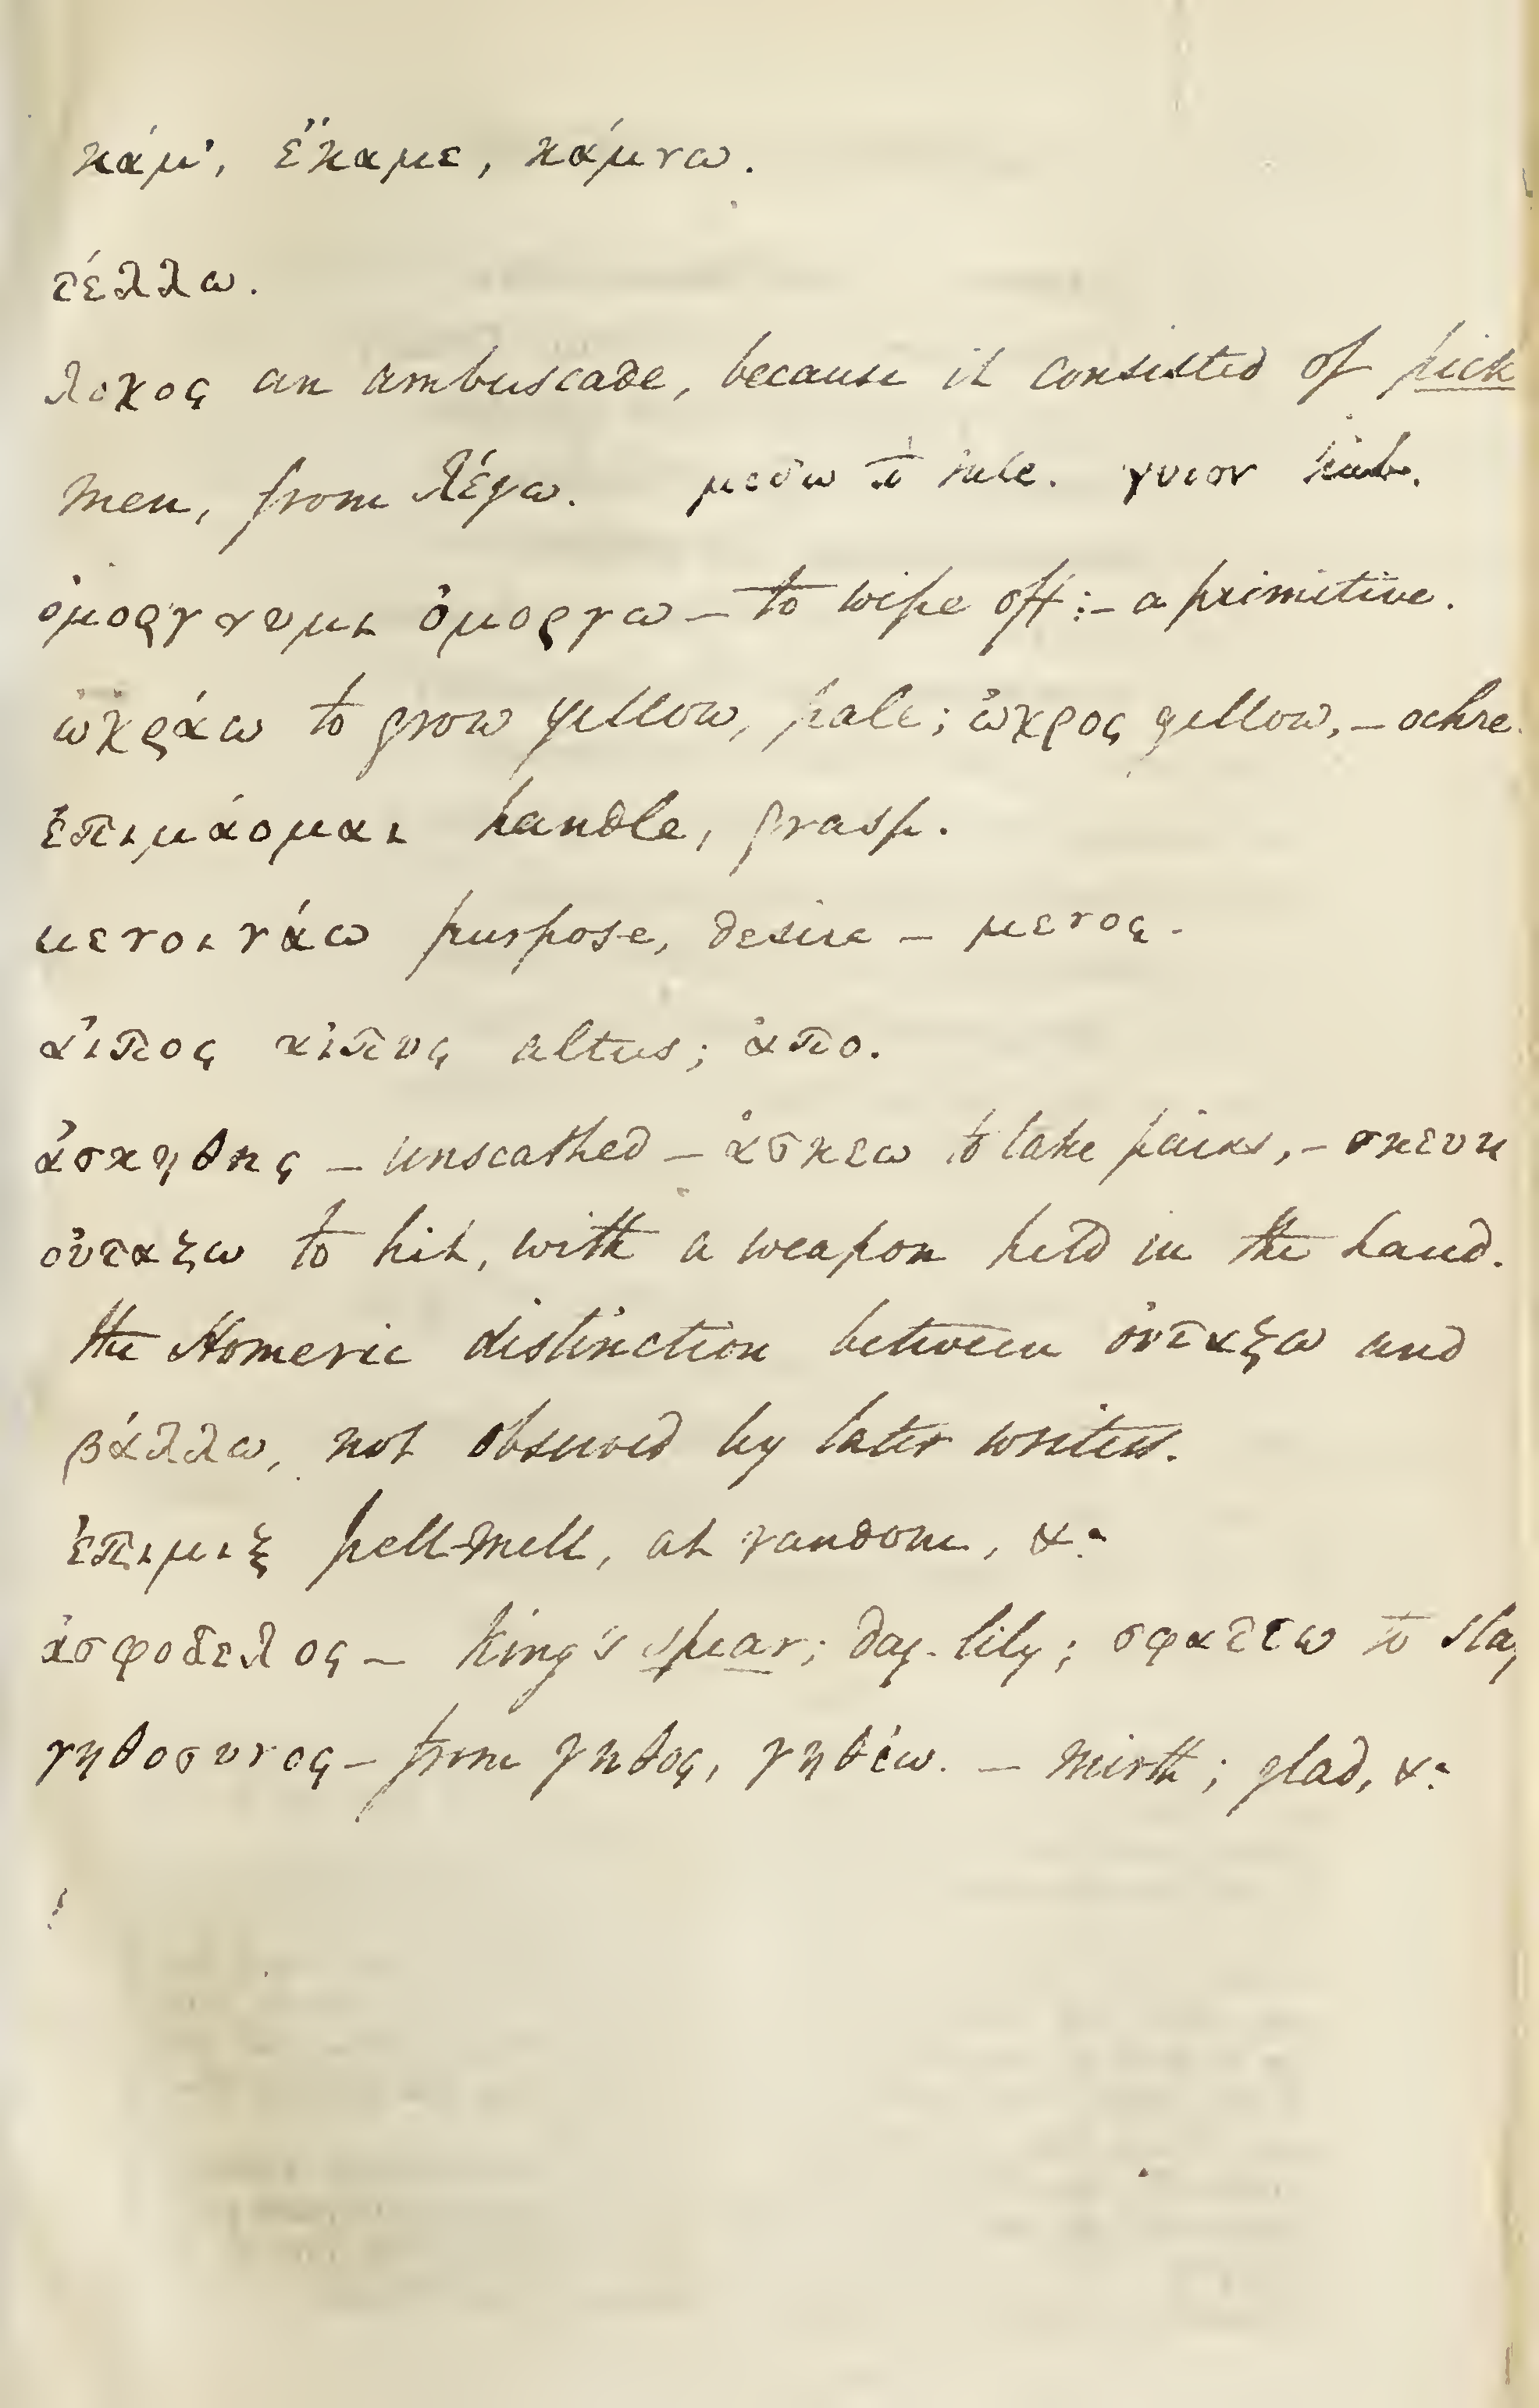 κάμ', ἔκαμε, κάμνω.
τέλλω.
λοχος an ambuscade, because it consisted of pick
men, from λέγω. μεδω to rule. γυιον limb.
ὀμοργνυμι ὀμοργω — to wipe off:— a primitive.
ὠχράω to grow yellow, pale; ὠχρος yellow, — ochre.
ἐπιμάομαι handle, grasp.
μενοινάω purpose, desire — μενος.
αἰπος αἰπυς altus; ἀπο.
ἀσκηθης — unscathed — ἀσκεω to take pains, — σκευη
οὐταζω to hit, with a weapon held in the hand.
the Homeric distinction between οὐταζω and
βάλλω, not observed by later writers.
ἐπιμιξ pell-mell, at random, &c
ἀσφοδελος — king's spear; day-lily; σφαττω to slay
γηθοσυνος — from γηθος, γηθέω. — mirth; glad, &c